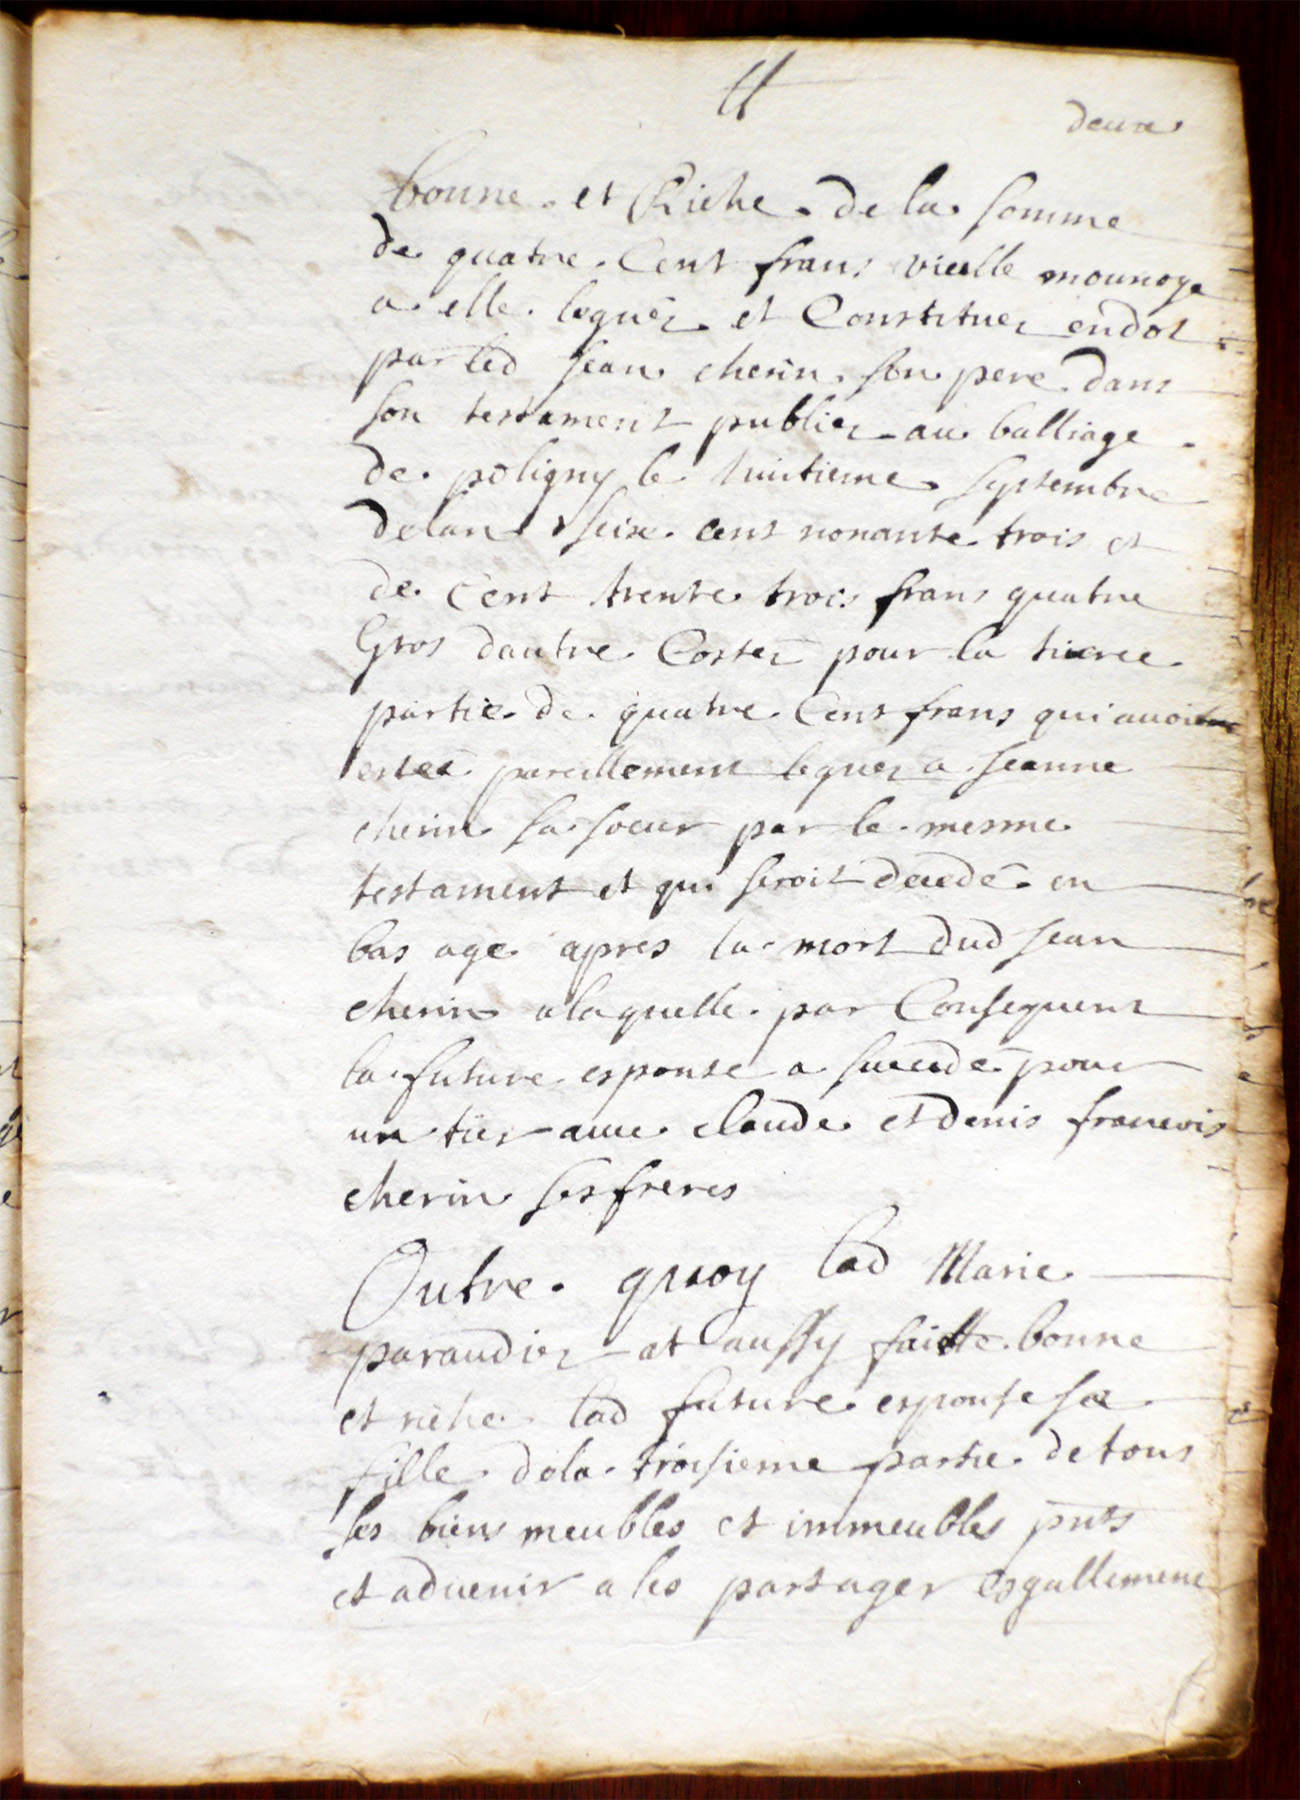 deux
bonne et Riche de la somme
de quatre Cent frans vieille monnoye
a elle leguez et Constituez en dot
par led Jean cherin son pere dans
son testament publiez au balliage
de poligny le huitieme septembre
delan seize cent nonante trois et
de Cent trente trois frans quatre
Gros dautre Costez pour la tierce
partie de quatre Cent frans qui avoit
estez pareillement leguez a Jeanne
cherin sa soeur par le mesme
testament et qui seroit decedé en
bas age apres la mort dud Jean
cherin a laquelle par Consequent
la future espouse a succedé pour
un tier avec claude et denis francois
cherin ses freres
Outre quoy lad Marie
paraudiez at aussy faitte bonne
et riche lad future espouse sa
fille dela troisieme partie de tous
ses biens meubles et immeubles pnts
et advenir a les partager esgallement